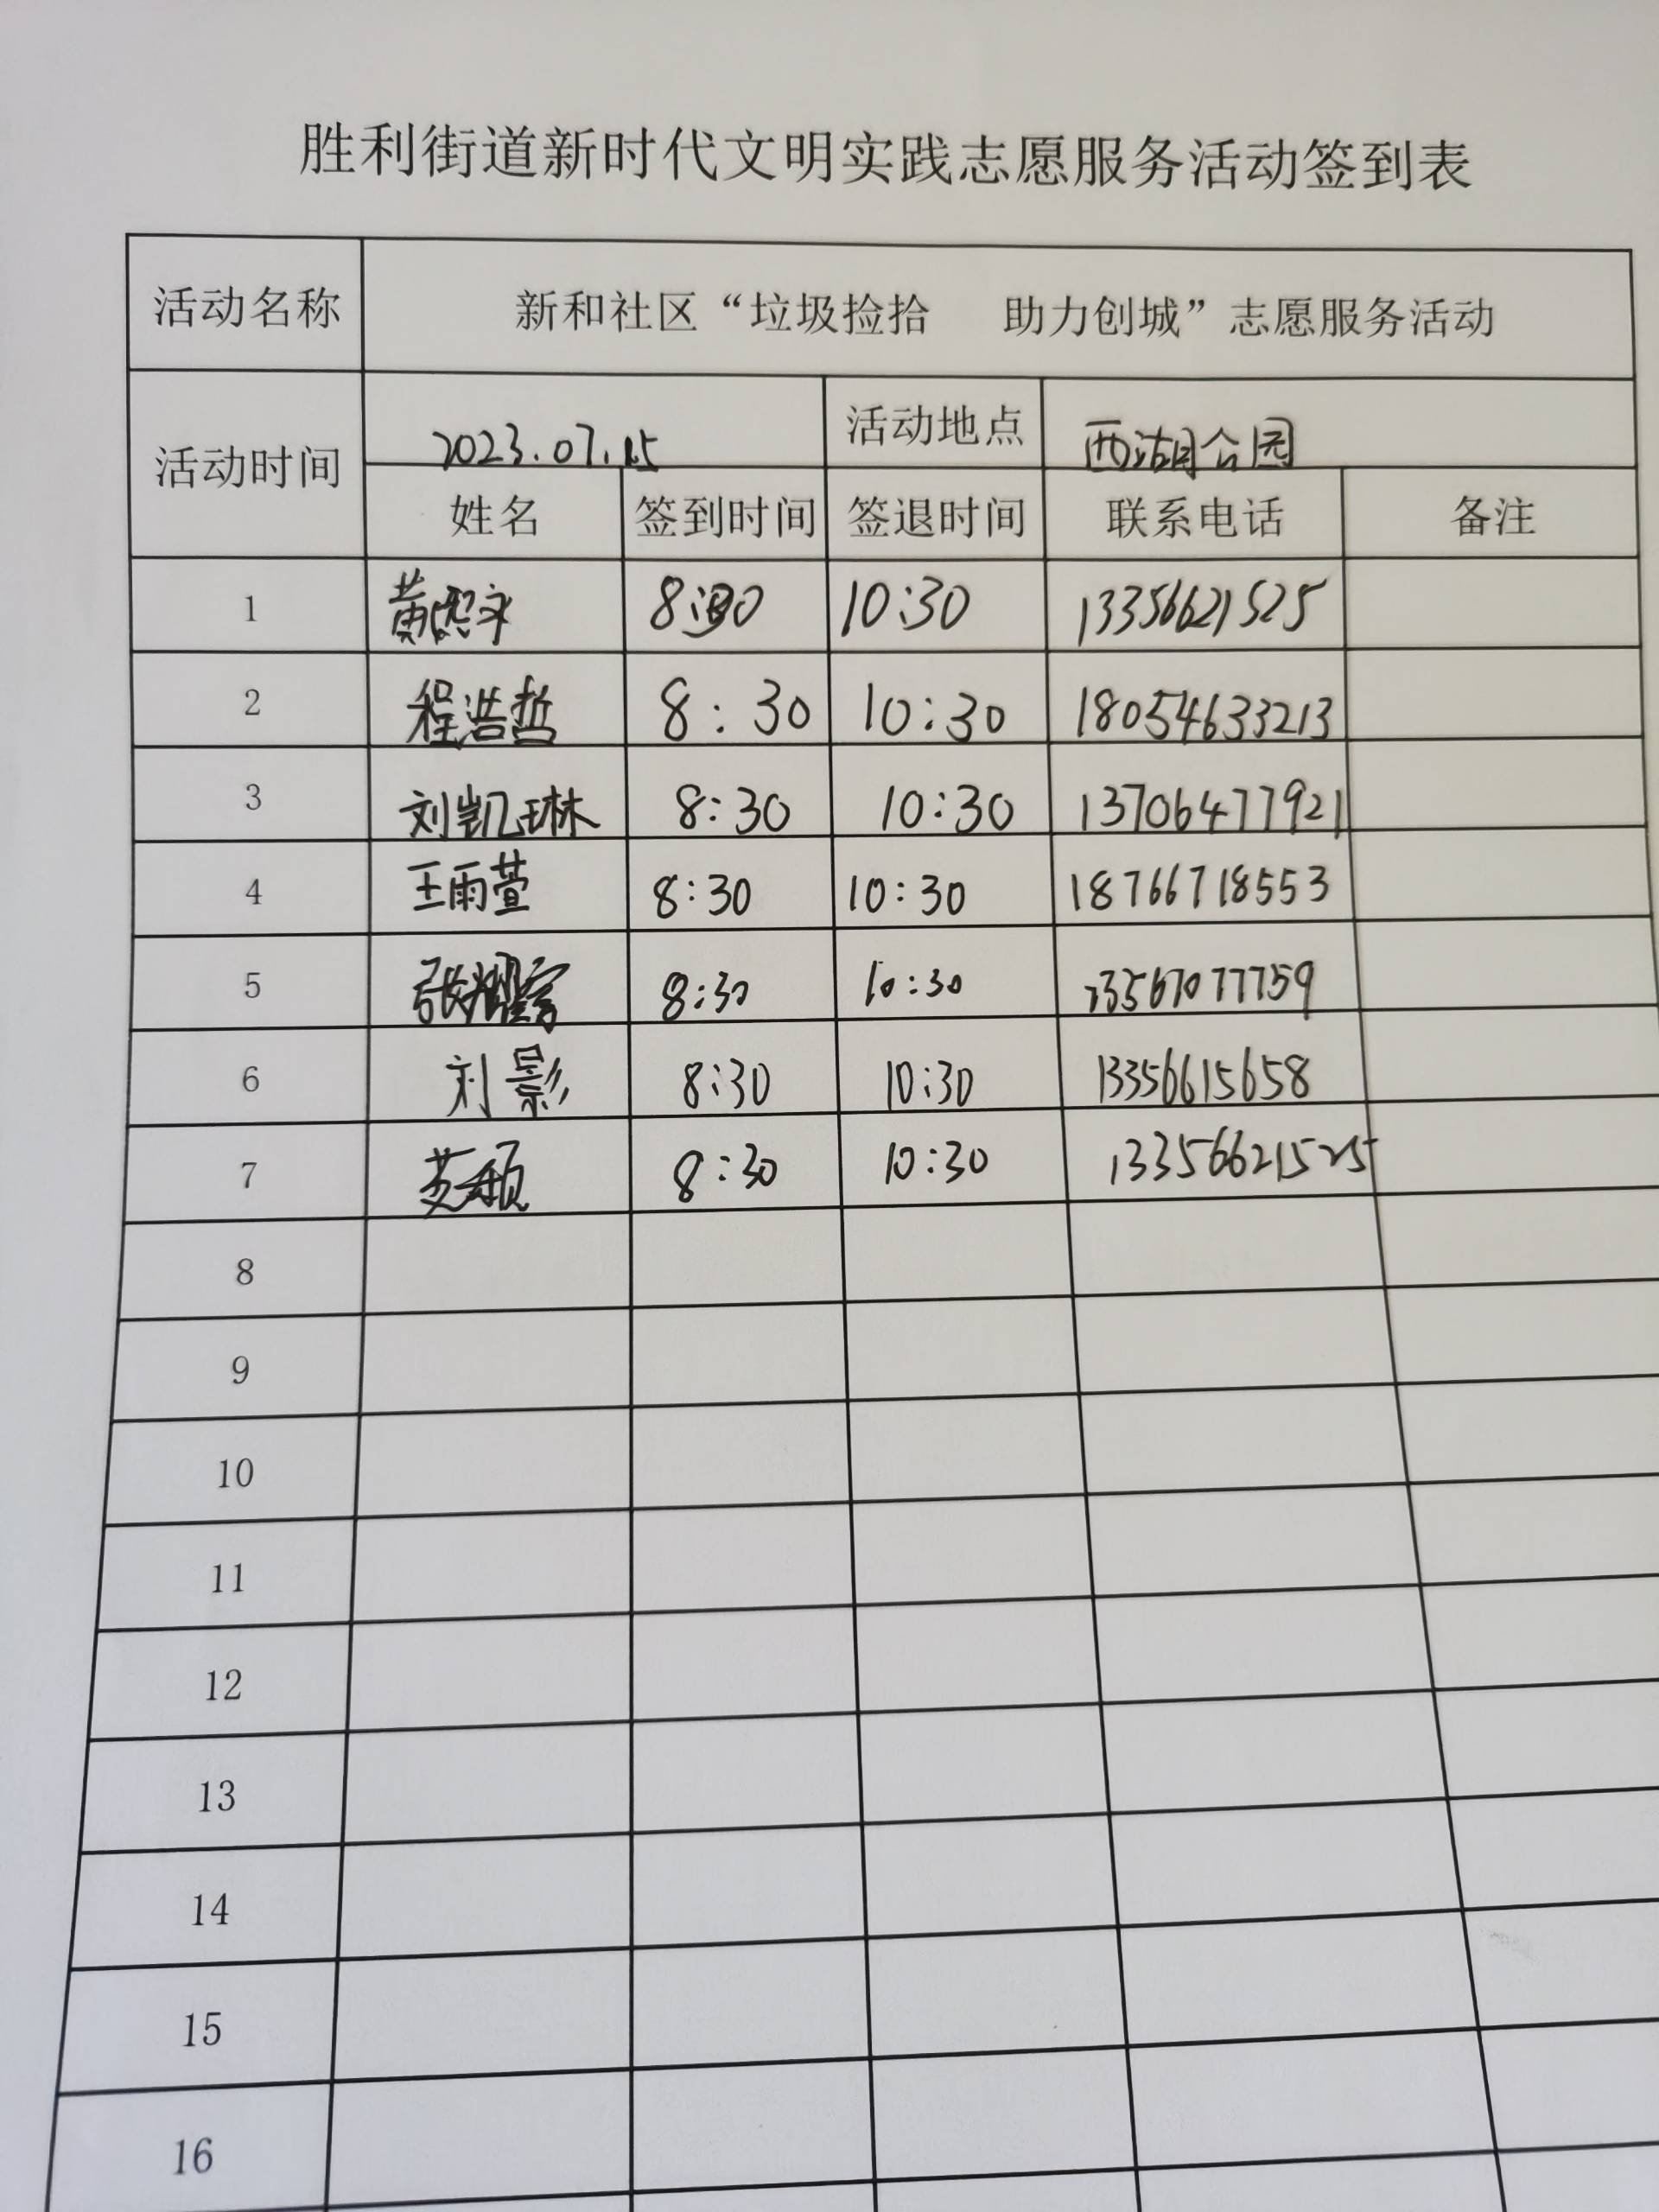 胜利街道新时代文明实践志愿服务活动签到表
活动名称 新和社区“垃圾捡拾 助力创城”志愿服务活动
活动时间 2023.07.15 活动地点 西湖公园
姓名 签到时间 签退时间 联系电话 备注
1 黄熙 8:30 10:30 13356621525
2 程浩哲 8:30 10:30 18054633213
3 刘凯琳 8:30 10:30 13706477921
4 王雨萱 8:30 10:30 18766718553
5 张 8:30 10:30 13561077759
6 刘影 8:30 10:30 13356615658
7 8:30 10:30 13356621525
8
9
10
11
12
13
14
15
16